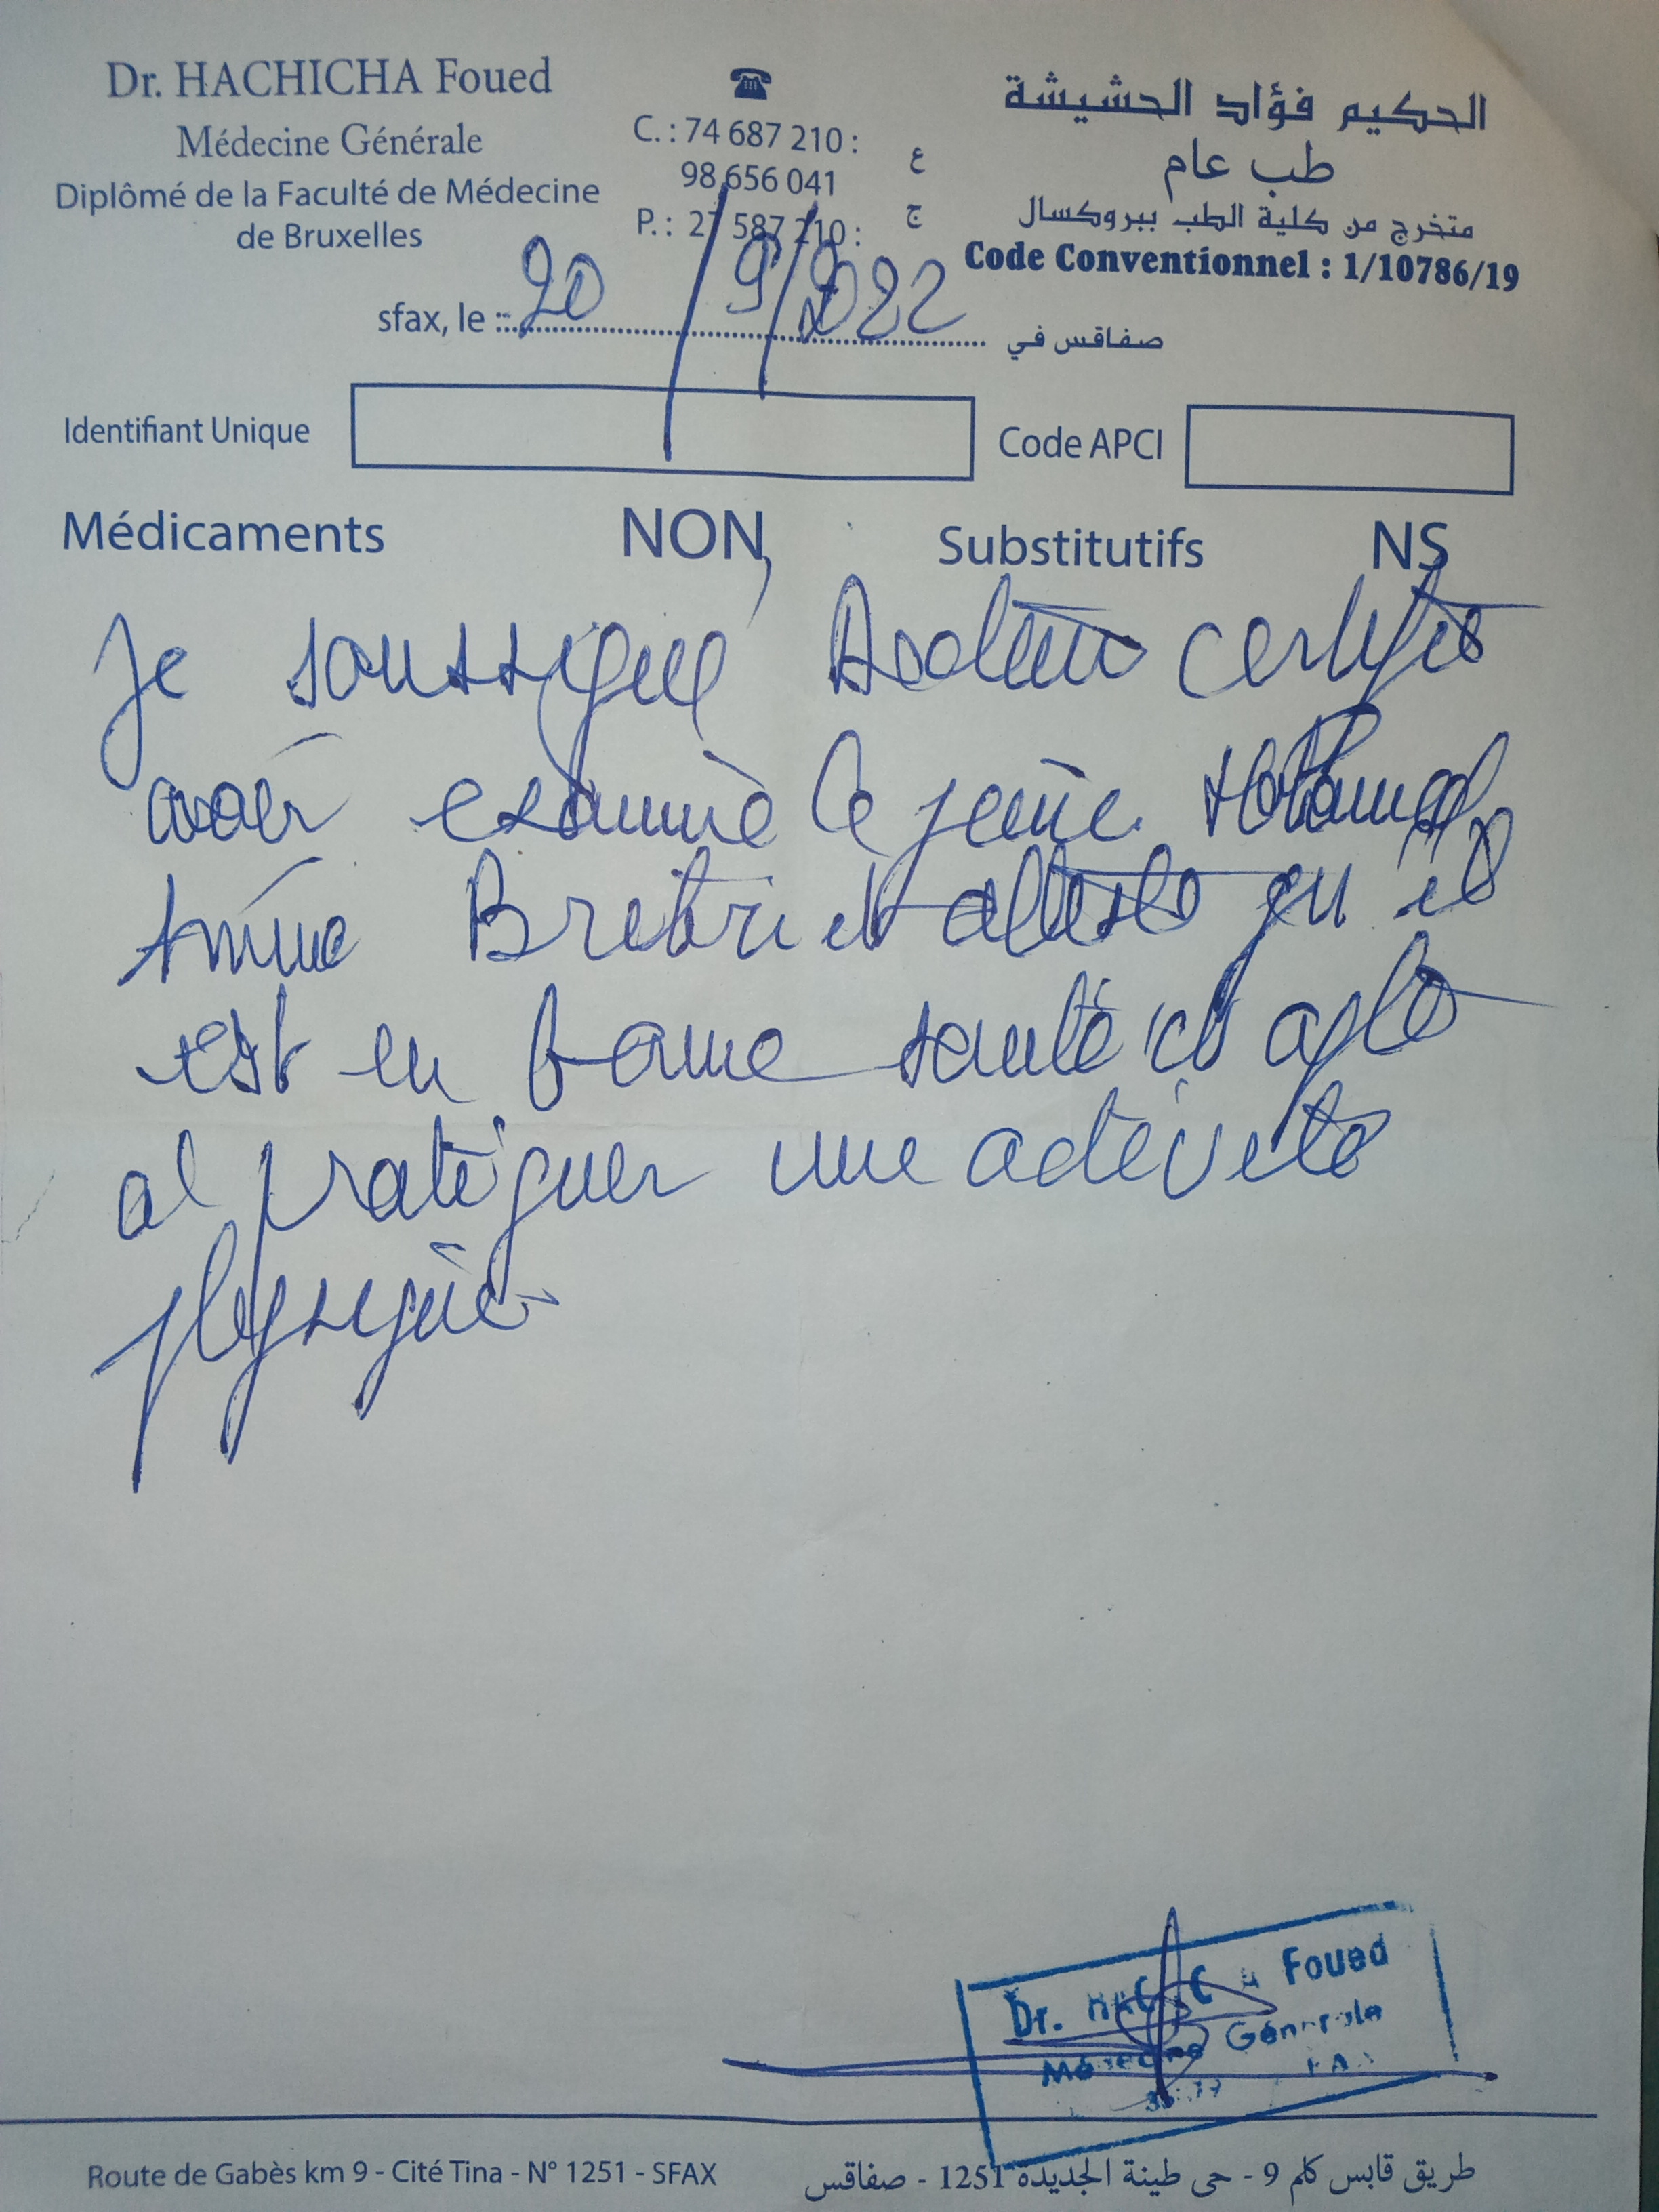 Dr. HACHICHA Foued
Médecine Générale
Diplômé de la Faculté de Médecine
de Bruxelles
C. : 74 687 210 : ع
98 656 041
P. : 27 587 210 : ج
الحكيم فؤاد الحشيشة
طب عام
متخرج من كلية الطب ببروكسال
Code Conventionnel : 1/10786/19
sfax, le : 20 / 9 / 2022 صفاقس في
Identifiant Unique Code APCI
Médicaments NON Substitutifs NS
Je soussigné Docteur certifie
avoir examiné le jeune Mohamed
Amine Bretri et atteste qu'il
est en bonne santé et apte
à pratiquer une activité
physique
Dr. Foued
Médecine Générale
Route de Gabès km 9 - Cité Tina - N° 1251 - SFAX
طريق قابس كلم 9 - حي طينة الجديدة 1251 - صفاقس